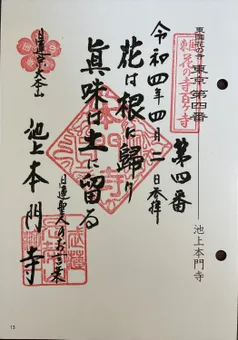 東国花の寺 東京第四番
池上本門寺
第四番
令和四年四月二日参拝
花は根に歸り
眞味は土に留る
日蓮聖人のお言葉
日蓮宗大本山
池上本門寺
花の寺百ヶ寺
15